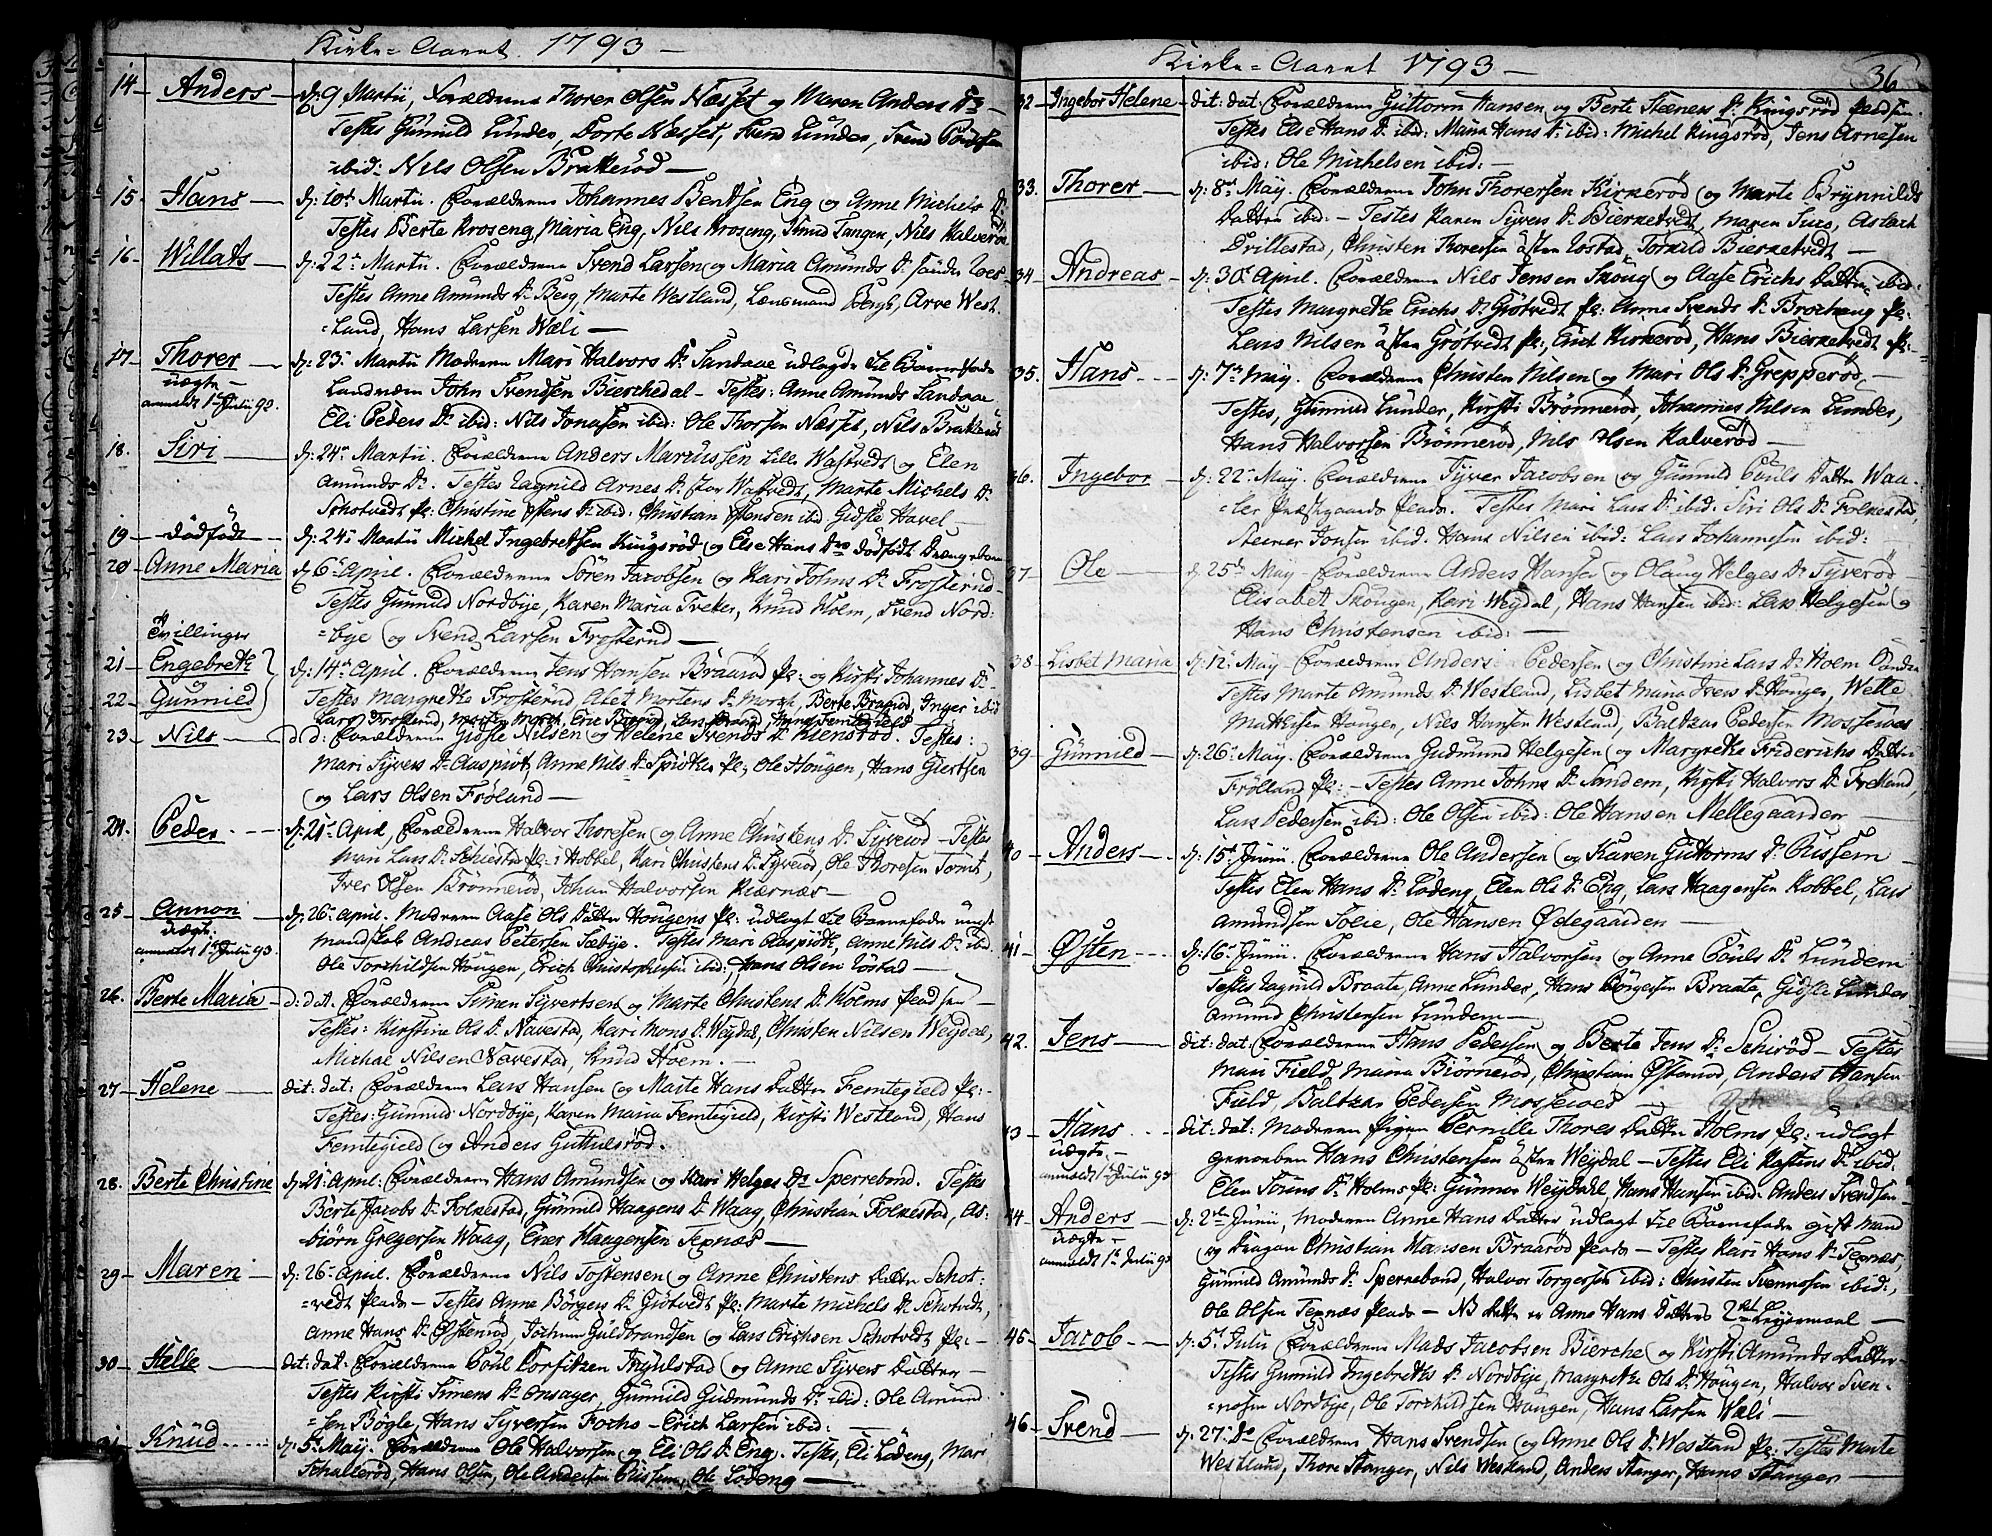 Kirke-Aaret 1793 —
14 — Anders — d: 9 Martii, Forældrene Thorer Olsen Næsset og Maren Anders Dr
Testes Gunnild Lunder, Dorte Næsset, Svend Lunder, Svend
ibid: Nils Olsen Brakerød —
15 — Hans — d: 10de Martii. Forældrene Johannes Bentsen Eng og Anne Michels D:
Testes Berte Kroseng, Maria Eng, Nils Kroseng, Knud Tangen, Nils Halverød
16 — Willats — d: 22de Martii. Forældrene Svend Larsen og Maria Amunds Dr
Testes Anne Amunds Dr Berg, Marte Westland, Lænsmand Bergh, Arve West
=land, Hans Larsen Wæli —
17 — Thorer — d: 23de Martii Moderen Mari Halvors Dr Sandaae udlagde til Barnefader
uægte —
anmeldt 1ste Julii 93.
Landværn John Svendsen Bierchedal — Testes: Anne Amunds Sandaae
Eli Peders Dr ibid: Nils Jonasen ibid: Ole Thorsen Næsset, Nils Brakerud
18. Siri — d: 24de Martii. Forældrene Anders Marcussen Lille Watvedt og Elen
Amunds Dr. Testes Ragnild Arnes Dr Stor Watvedt, Marte Michels Dr
Schotvedt pl: Christine Ifsens Dr ibid: Christian Ifsensen ibid Gidsle Havel —
19 — dødfødt — d: 24de Martii Michel Ingebretsen Kingsrød og Else Hans Dr dødfødt Drængebarn
20 — Anne Maria d: 6te April. Forældrene Sören Jacobsen og Kari Johns Dr Frosterud —
Testes Gunnild Nordbye, Karen Maria Treker, Knud Holm, Svend Nord=
=bye og Svend Larsen Frosterud —
Tvillinger
21 — Engebreth d: 14de April. Forældrene Jens Hansen Braarud pl: og Kirsti Johannes Dr
og
22 — Gunnild Testes Margrethe Frosterud Abet Mortens Dr Morch, Berte Braarud, Inger ibid
Lars Frosterud, Morten Morch, Eric Braarud, Lars Braarud, Hans Femtegield
23 — Nils — d: d: Forældrene Gidsle Nilsen og Helene Svends Dr Kienstad. Testes:
Mari Syvers Dr Aaspiøt, Anne Nils Dr Spiøtler pl:, Ole Hougen, Hans Giertsen
og Lars Olsen Frøland —
24. Peder — d: 21de April, Forældrene Halvor Thoresen og Anne Christens Dr Syverød — Testes
Mari Lars Dr Schiestad pl: i Hobbel, Kari Christens Dr Syverød, Ole Thoresen Tomt,
Iver Olsen Brönnerød, Johan Halvorsen Kiærnæs —
25 — Annon — d: 26de April. Moderen Aase Ols Datter Hougens pl: udlagt til Barnefader ungt
uægte.
anmeldt 1ste Julii 93.
mandskab Andreas Petersen Sæbye. Testes Mari Aaspiøt, Anne Nils Dr ibid
Ole Torchildsen Hougen, Erich Christophersen ibid: Hans Olsen Løstad —
26. Berte Maria — d: dat. Forældrene Simen Syvertsen og Marte Christens Dr Holms pladsen —
Testes: Kirstine Ols Dr Navestad, Kari Mons Dr Weydal, Christen Nilsen Weydal,
Michal Nilsen Navestad, Knud Hoem. —
27 — Helene — dit: dat: Forældrene Lars Hansen og Marte Hans Datter Femtegield pl:
Testes: Gunnild Nordbye, Karen Maria Femtegield, Kirsti Westland, Hans
Femtegield og Anders Guthulsrød.
28. Berte Christine d: 21de April: Forældrene Hans Amundsen og Kari Helges Dr Sperrebond. Testes
Berte Jacobs Dr Folkestad, Gunnild Haagens Dr Waag, Christian Folkestad, As=
biörn Gregersen Waag, Ener Haagensen Texnæs —
29 — Maren — d: 26de April. Forældrene Nils Tostensen og Anne Christens Datter Schot=
=vedt plads — Testes Anne Börgers Dr Giötvedt pl: Marte Michels Dr Schotvedt,
Anne Hans Dr Ofstenrød, Jochum Guldbrandsen og Lars Erichsen Schotvedt pl: —
30 — Helle — dit: dat: Forældrene Poul Torfitsen Ingulstad og Anne Syvers Datter —
Testes Kirsti Simens Dr Onsager, Gunnild Gudmunds Dr ibid: Ole Amund
=sen Bögle, Hans Syversen Fochs — Erich Larsen ibid: —
31 — Knud — d: 5te May. Forældrene Ole Halvorsen og Eli Ols Dr Eng. Testes, Eli Lödeng, Mari
Schallerød, Hans Olsen, Ole Andersen Russem, Ole Lödeng —
Kirke-Aaret 1793 —
36
32 — Ingebor Helene — dit: dat. Forældrene Guttorm Hansen og Berte Steeners Dr Kingsrød pladsen.
Testes Else Hans Dr ibid: Maria Hans Dr ibid: Michel Kingsrød, Jens Arnesen
ibid: Ole Michelsen ibid: —
33. Thorer — d: 8de May. Forældrene John Thorersen Kirkerød og Marte Brynnilds
Datter ibid: — Testes Karen Syvers Dr Bierketvedt, Maren Suro, Aslach
Drillestad, Christen Thoresen østen Løstad, Torkild Bierketvedt —
34 — Andreas — d: 30de April. Forældrene Nils Jensen Skoug og Aase Erichs Datter ibid:
Testes Margrethe Erichs Dr Grøtvedt pl: Anne Svends Dr Brocheng pl:
Lars Nilsen østen Grøtvedt pl:, Erich Kirkerød, Hans Bierketvedt pl: —
35. Hans — d: 7de May. Forældrene Christen Nilsen og Mari Ols Dr Grepperød —
Testes, Gunnild Lunder, Kirsti Brönnerød, Johannes Nilsen Lunder,
Hans Halvorsen Brönnerød, Nils Olsen Halverød —
36. Ingebor — d: 22de May. Forældrene Syver Jacobsen og Gunnild Pouls Datter Waa=
=ler Præstgaards plads. Testes Mari Lars Dr ibid. Siri Ols Dr Folkestad,
Steener Jonsen ibid. Hans Nilsen ibid: Lars Johannesen ibid: —
37 — Ole — d: 25de May — Forældrene Anders Hansen og Olaug Helges Dr Syverød —
Elisabet Skougen, Kari Weydal, Hans Hansen ibid: Lars Helgesen og
Hans Christensen ibid: —
38 — Lisbet Maria d: 12te May — Forældrene Anders Pedersen og Christine Lars Dr Hoem
Testes Marte Amunds Dr Westland, Lisbet Maria Ivers Dr Hougen, Wette
Mathisen Hougen, Nils Hansen Westland, Baltzar Pedersen Mossewed
39 Gunnild — d: 26de May. Forældrene Gudmund Helgesen og Margrethe Friderichs Datter
Frölland pl: — Testes Anne Johns Dr Sandem, Kirsti Halvors Dr Frölland,
Lars Pedersen ibid: Ole Olsen ibid: Ole Hansen Mellegaarden —
40 — Anders — d: 15de Junii. Forældrene Ole Andersen og Karen Guttorms Dr Russem —
Testes Elen Hans Dr Lödeng, Elen Ols Dr Eng, Lars Haagensen Kobbel, Lars
Amundsen Solie, Ole Hansen Ødegaarden —
41 — Østen — d: 16de Junii. Forældrene Hans Halvorsen og Anne Pouls Dr Lundem
Testes Ragnild Braate, Anne Lunder, Hans Börgersen Braate, Gidsle Lunder
Amund Christensen Lundem —
42. Jens — dit: dat: Forældrene Hans Pedersen og Berte Jens Dr Schirød — Testes
Mari Field, Maria Biörnerød, Christian Ofstenrød, Anders Hansen
Field, Baltzar Pedersen Mossewed —
43 — Hans — dit: dat: Moderen pigen Pernille Thores Datter Holms pl: udlagt
uægte —
anmeldt 1ste Julii 93
gevorben Hans Christensen østen Weydal — Testes Eli Karstens Dr ibid:
Elen Torins Dr Holms pl: Gunnor Weydahl, Hans Hansen ibid: Anders Svendsen —
44 — Anders — d: 2de Junii, Moderen Anne Hans Datter udlagt til Barnefader gift Mand
uægte —
anmeldt 1ste Julii 93
og Dragon Christian Hansen Braarød plads — Testes Kari Hans Dr Texnæs,
Gunnild Amunds Dr Sperrebond, Halvor Torgersen ibid: Christen Svennesen ibid:,
Ole Olsen Texnæs plads — NB dette er Anne Hans Datters 2det Leyermaal —
45 — Jacob — d: 5te Julii Forældrene Mads Jacobsen Bierche og Kirsti Amunds Datter —
Testes Gunnild Ingebreths Dr Nordbye, Margrethe Ols Dr Hougen, Halvor Sven=
=nesen Nordbye, Ole Torchildsen Hougen, Hans Larsen Wæli —
46 — Svend — d: 27de Do Forældrene Hans Svendsen og Anne Ols Dr Westland pl: Testes Marte
Westlund, Thore Stanger, Nils Westlund, Anders Stanger, Hans Stanger —